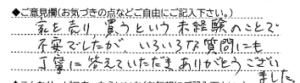 ◆ご意見欄(お気づきの点などご自由にご記入下さい。)
家を売り、買うという未経験のことで
不安でしたが、いろいろな質問にも
丁寧に答えていただきありがとうござい
ました